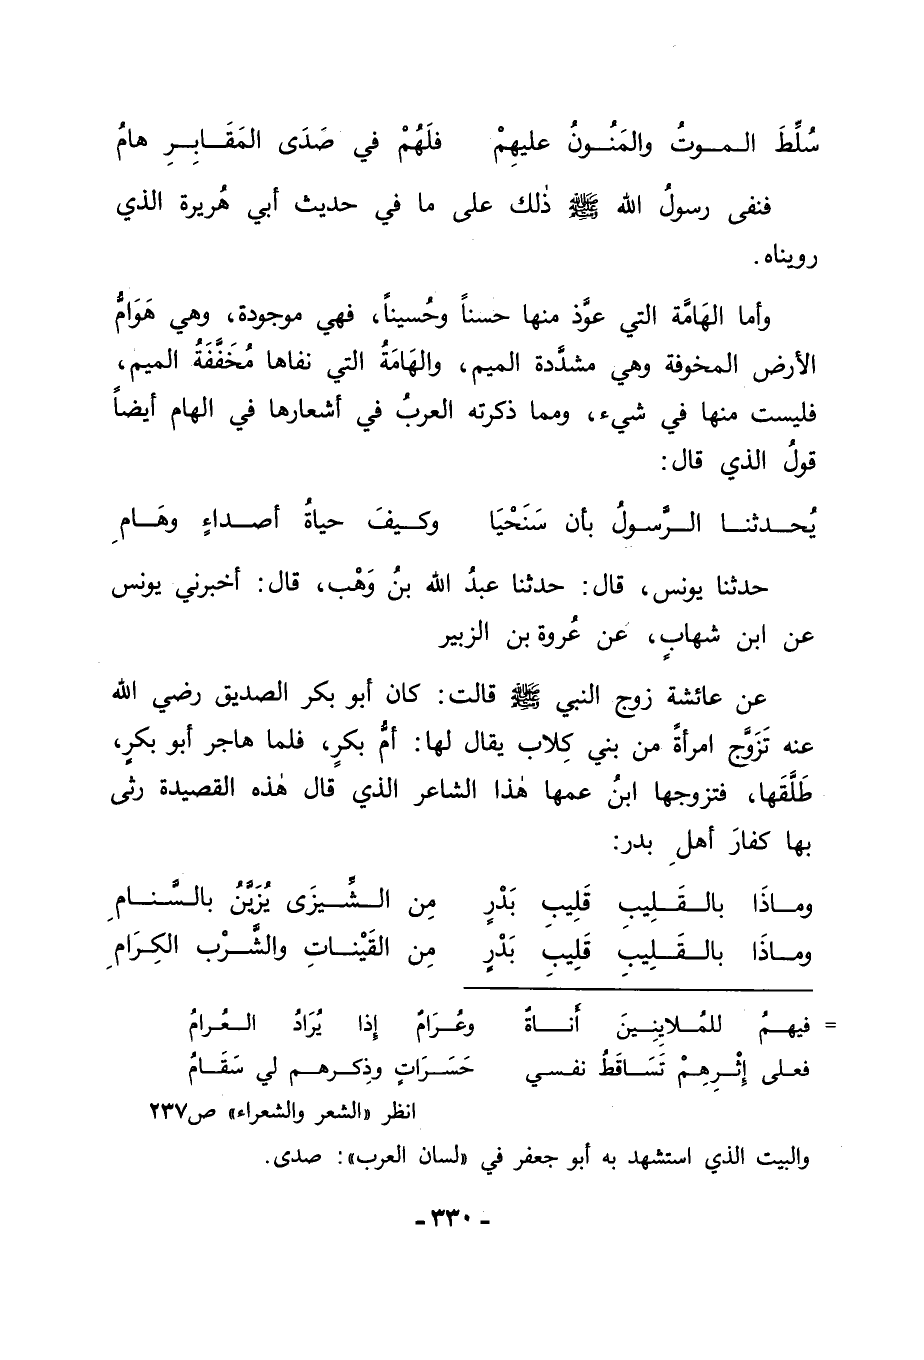 سُلِّطَ المـوتُ والمَنُـونُ عليهِمْ فلَهُمْ في صَدَى المَقَـابِـرِ هامُ
فنفى رسولُ الله ﷺ ذٰلك على ما في حديث أبي هُريرة الذي
رويناه.
وأما الهَامَّة التي عوَّذ منها حسناً وحُسيناً، فهي موجودة، وهي هَوَامُّ
الأرض المخوفة وهي مشدَّدة الميم، والهَامَةُ التي نفاها مُخَفَّفَةُ الميم،
فليست منها في شيء، ومما ذكرته العربُ في أشعارها في الهام أيضاً
قولُ الذي قال:
يُحـدثنـا الـرَّسـولُ بأن سَنَحْيَا وكـيـفَ حياةُ أصـداءٍ وهَـامِ
حدثنا يونس، قال: حدثنا عبدُ الله بنُ وَهْب، قال: أخبرني يونس
عن ابن شهابٍ، عن عُروة بن الزبير
عن عائشة زوج النبي ﷺ قالت: كان أبو بكر الصديق رضي الله
عنه تَزَوَّج امرأةً من بني كِلاب يقال لها: أمُّ بكرٍ، فلما هاجر أبو بكرٍ،
طَلَّقَها، فتزوجها ابنُ عمها هٰذا الشاعر الذي قال هٰذه القصيدة رثى
بها كفارَ أهلِ بدر:
ومـاذَا بالـقَـلِيبِ قَلِيبِ بَدْرٍ مِن الـشِّـيزَى يُزَيَّنُ بالسَّنامِ
ومـاذَا بالـقَـلِيبِ قَلِيبِ بَدْرٍ مِن القَيْنـاتِ والشَّرْبِ الكِرَامِ
= فيهـمُ للمُـلايِنِينَ أَنـاةٌ وعُـرَامٌ إذا يُرَادُ الـعُرامُ
فعـلى إثْـرِهِمْ تَسَاقَطُ نفسـي حَسَـرَاتٍ وذِكـرهـم لي سَقَـامُ
انظر «الشعر والشعراء» ص٢٣٧
والبيت الذي استشهد به أبو جعفر في «لسان العرب»: صدى.
- ٣٣٠ -